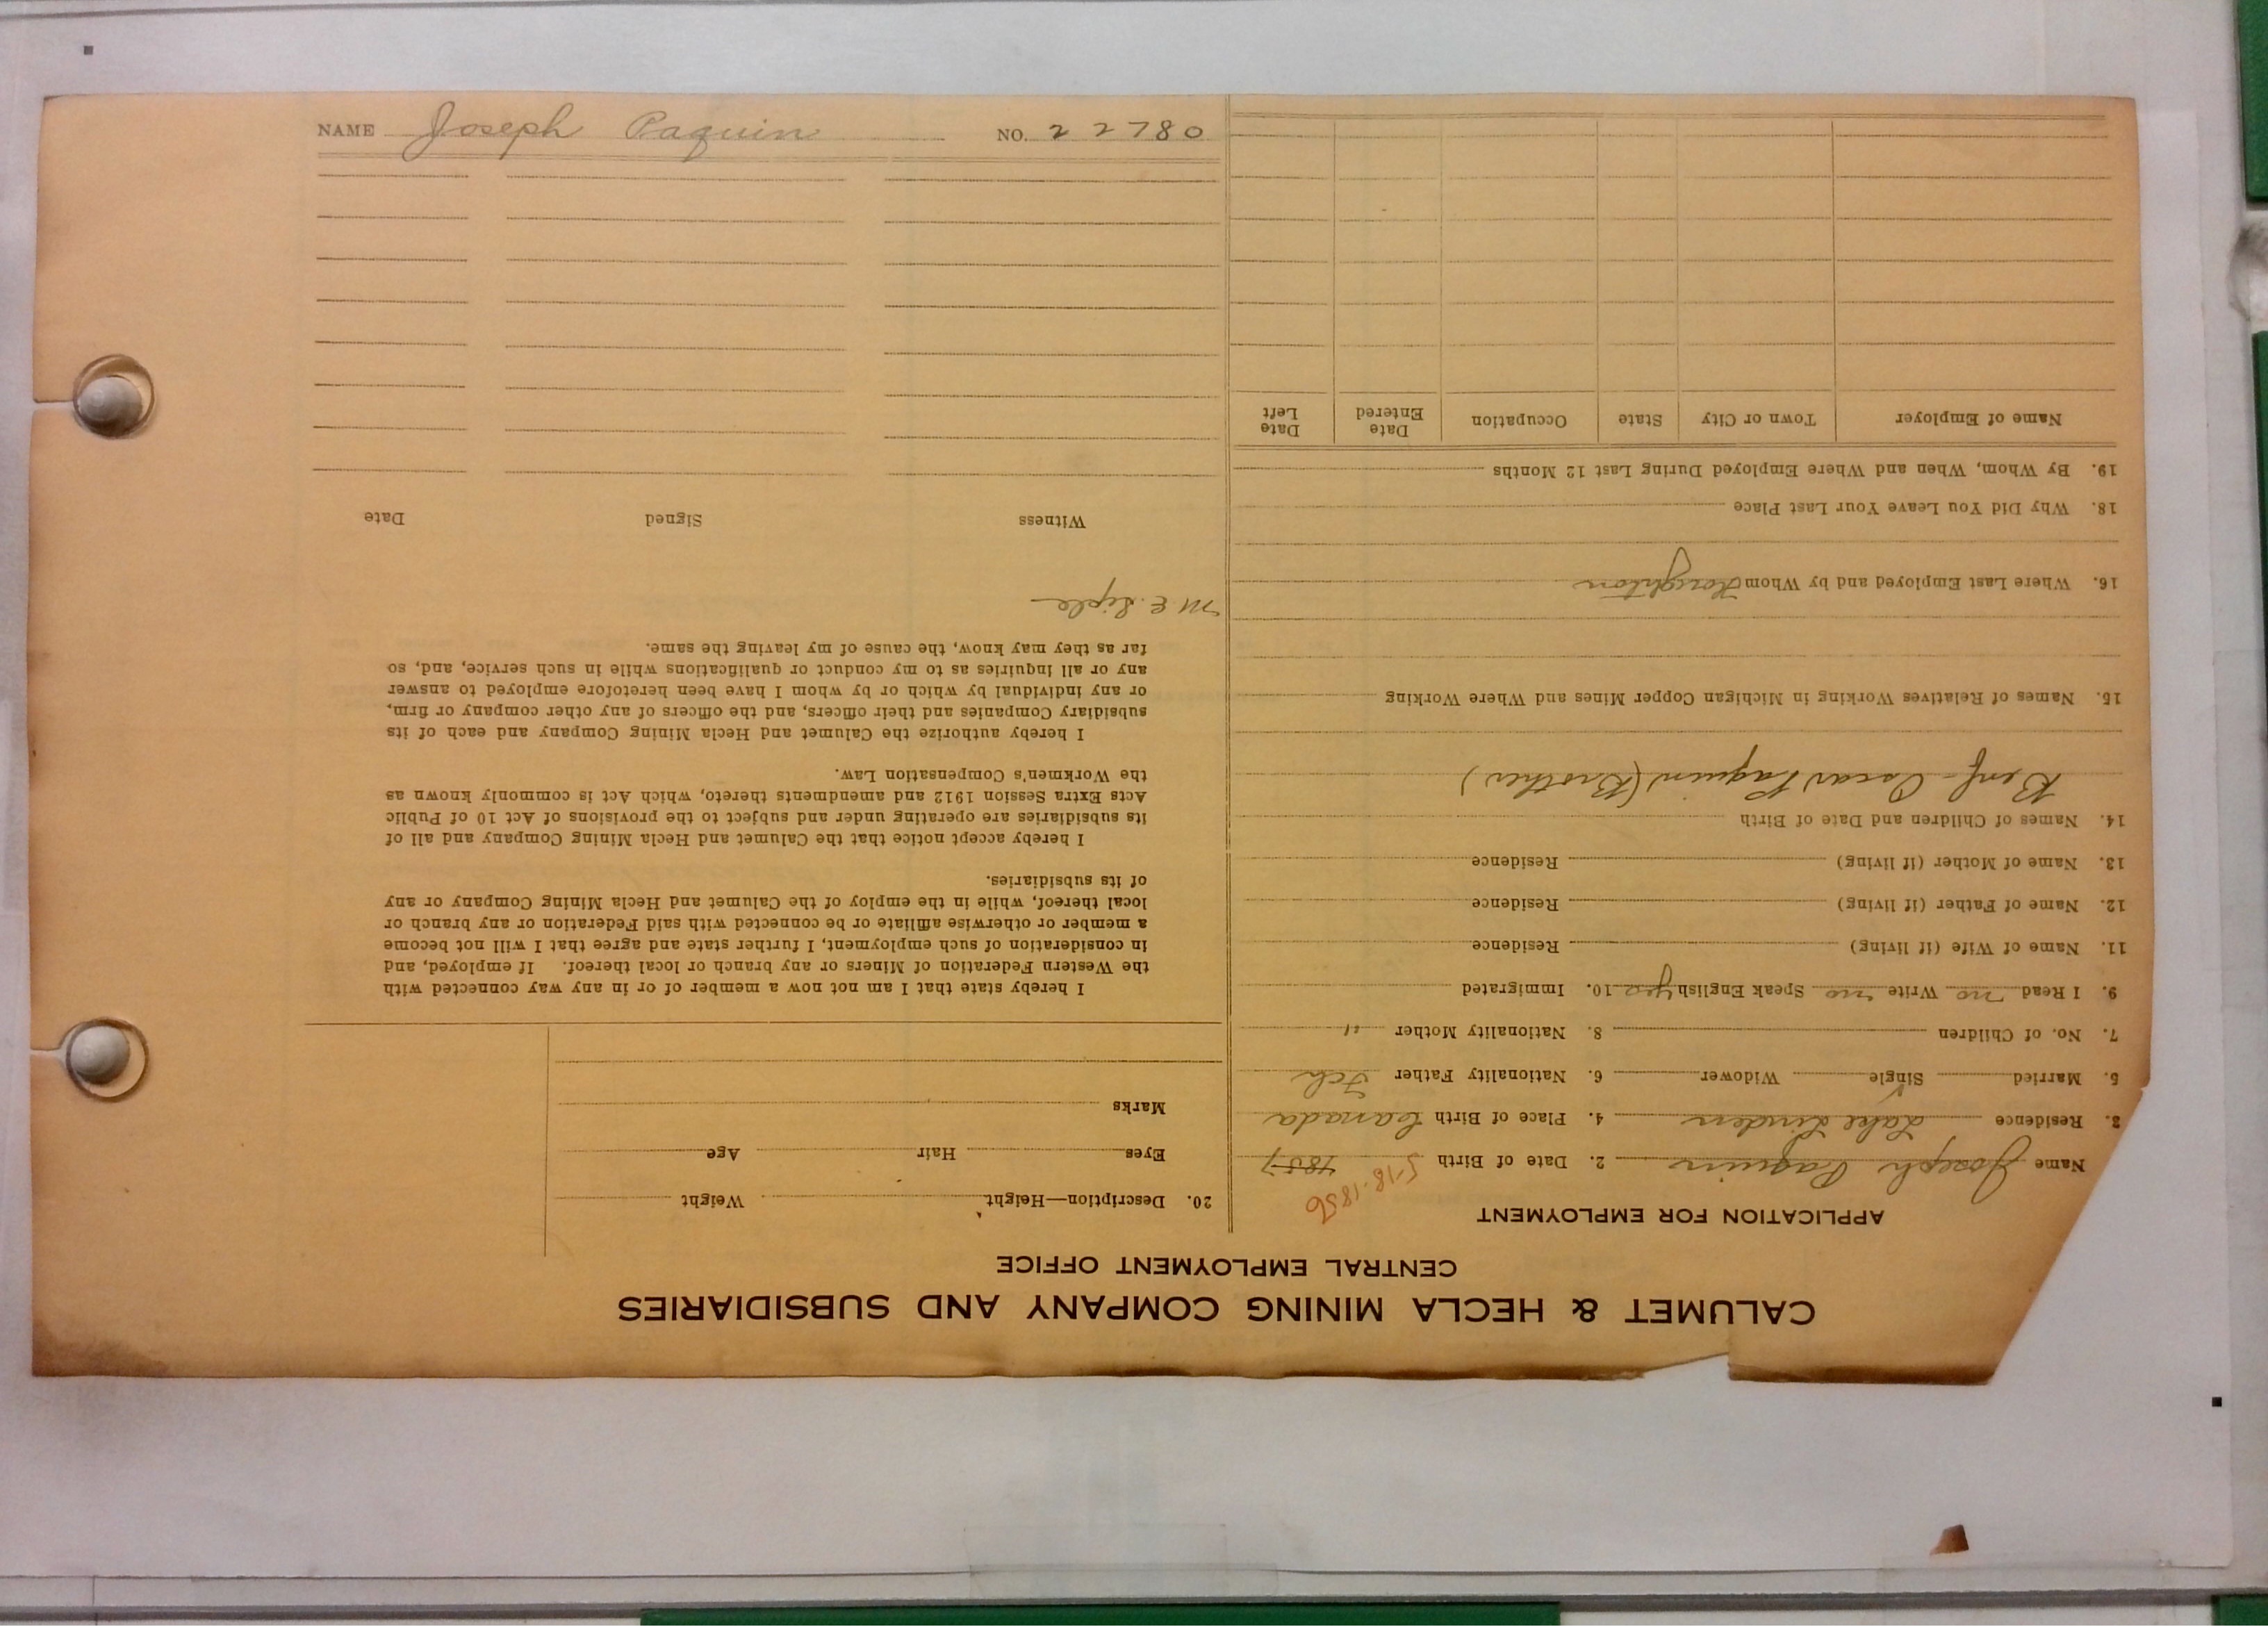 CALUMET & HECLA MINING COMPANY AND SUBSIDIARIES
CENTRAL EMPLOYMENT OFFICE
APPLICATION FOR EMPLOYMENT
5-18-1856
Name Joseph Paquin 2. Date of Birth 1857
3. Residence Lake Linden 4. Place of Birth Canada
5. Married Single Widower 6. Nationality Father Fch
7. No. of Children 8. Nationality Mother "
9. I Read no Write no Speak English yes 10. Immigrated
11. Name of Wife (if living) Residence
12. Name of Father (if living) Residence
13. Name of Mother (if living) Residence
14. Names of Children and Date of Birth
Benf- Oscar Paquin (Brother)
15. Names of Relatives Working in Michigan Copper Mines and Where Working
16. Where Last Employed and by Whom Houghton
18. Why Did You Leave Your Last Place
19. By Whom, When and Where Employed During Last 12 Months
Name of Employer Town or City State Occupation Date Entered Date Left
20. Description—Height Weight
Eyes Hair Age
Marks
I hereby state that I am not now a member of or in any way connected with
the Western Federation of Miners or any branch or local thereof. If employed, and
in consideration of such employment, I further state and agree that I will not become
a member or otherwise affiliate or be connected with said Federation or any branch or
local thereof, while in the employ of the Calumet and Hecla Mining Company or any
of its subsidiaries.
I hereby accept notice that the Calumet and Hecla Mining Company and all of
its subsidiaries are operating under and subject to the provisions of Act 10 of Public
Acts Extra Session 1912 and amendments thereto, which Act is commonly known as
the Workmen's Compensation Law.
I hereby authorize the Calumet and Hecla Mining Company and each of its
subsidiary Companies and their officers, and the officers of any other company or firm,
or any individual by which or by whom I have been heretofore employed to answer
any or all inquiries as to my conduct or qualifications while in such service, and, so
far as they may know, the cause of my leaving the same.
M E
Witness Signed Date
NAME Joseph Paquin NO. 22780